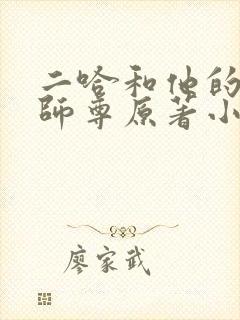 二哈和他的
師尊原著小
廖家武